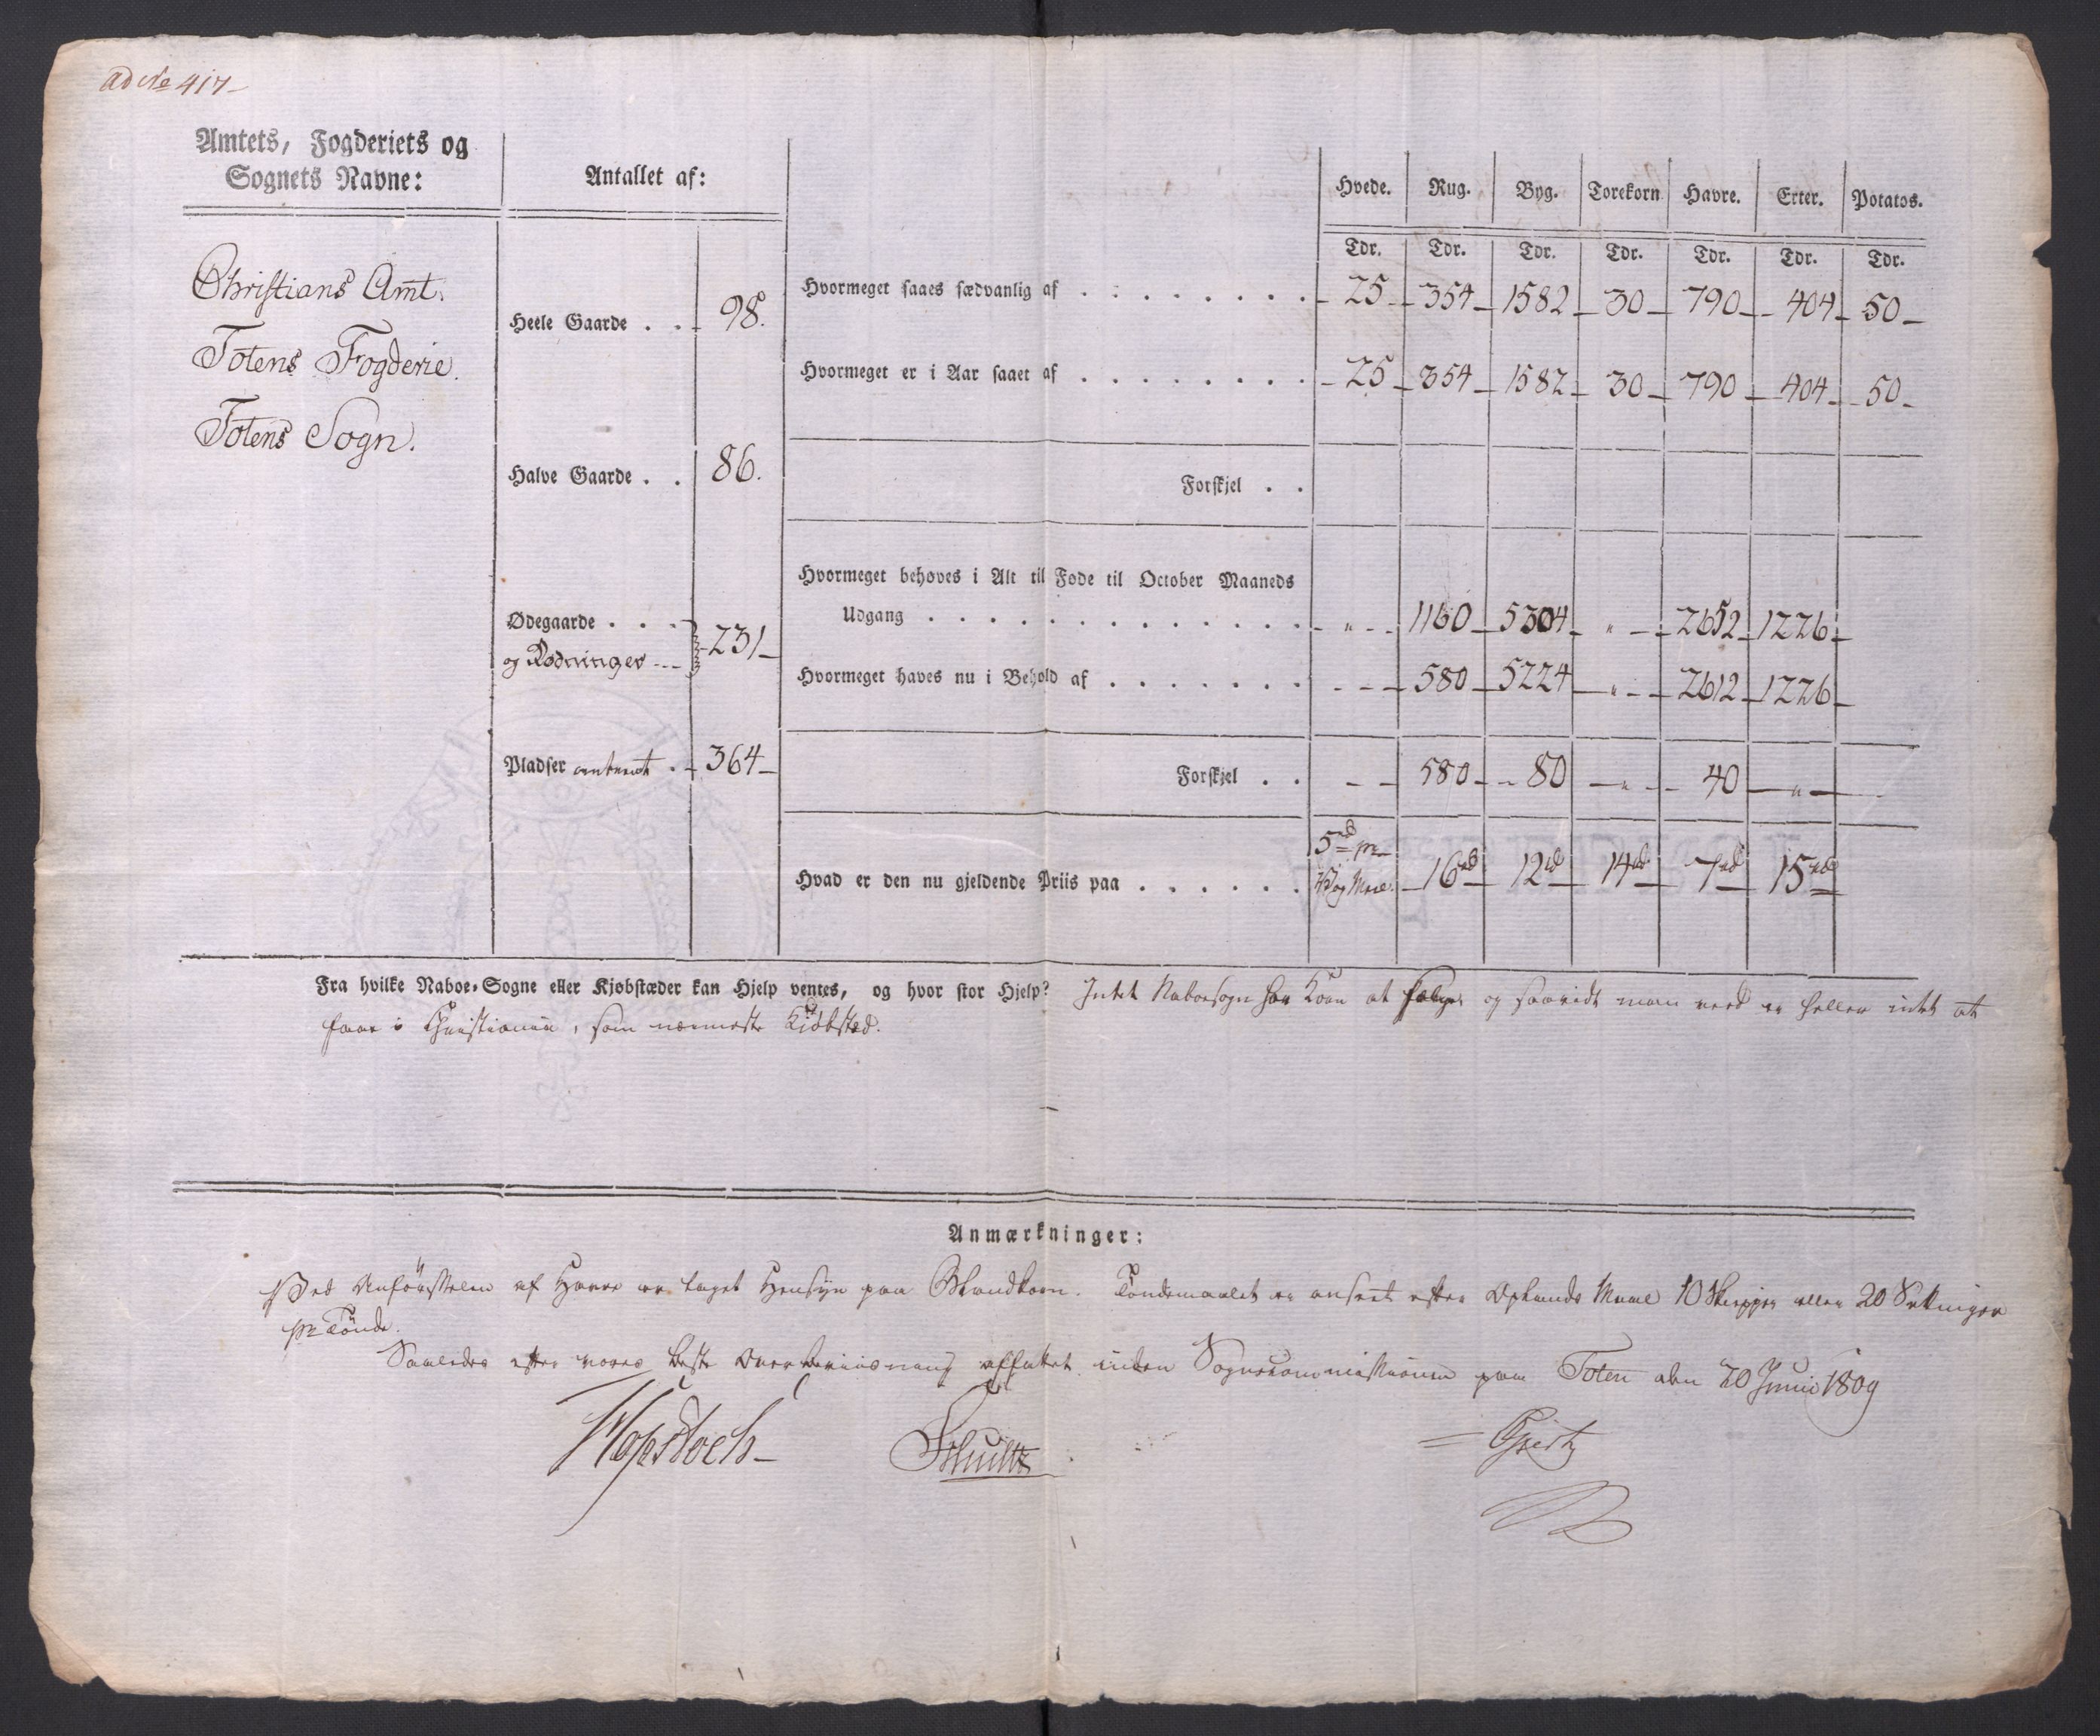 ad No 417
Amtets, Fogderiets og
Sognets Navne:
Antallet af:
Hvede. Rug. Byg. Torekorn Havre. Erter. Potatos.
Tdr. Tdr. Tdr. Tdr. Tdr. Tdr. Tdr.
Christians Amt.
Totens Fogderie.
Totens Sogn.
Heele Gaarde . . 98.
Halve Gaarde . . 86.
Ødegaarde . . .
og Rødninger --- 231
Pladser . 364
Hvormeget saaes sædvanlig af . . . . . . . . 25 354 1582 30 790 404 50
Hvormeget er i Aar saaet af . . . . . . . . 25 354 1582 30 790 404 50
Forskjel . .
Hvormeget behøves i Alt til Føde til October Maaneds
Udgang . . . . . . . . . . . . . " 1160 5304 " 2652 1226
Hvormeget haves nu i Behold af . . . . . . . - 580 5224 " 2612 1226
Forskjel . . - - 580 80 " 40 "
5 rd pr
Hvad er den nu gjeldende Priis paa . . . . . . 16 rd 12 rd 14 rd 7 rd 15 rd
Fra hvilke Naboe-Sogne eller Kjøbstæder kan Hjelp ventes, og hvor stor Hjelp? Intet Naboesogn har Korn at sælge og saavidt man veed er heller intet at
faae i Christiania, som nærmeste Kiøbstæd.
Anmærkninger:
Ved Anførselen af Havre er taget Hensyn paa Blandkorn. Tøndemaalet er anseet efter Oplands Maal 10 Skiepper eller 20 Settinger
pr Tønde.
Saaledes efter vores beste Overbeviisning affattet inden Sognecommissionen paa Toten den 20 Junii 1809
Schultz